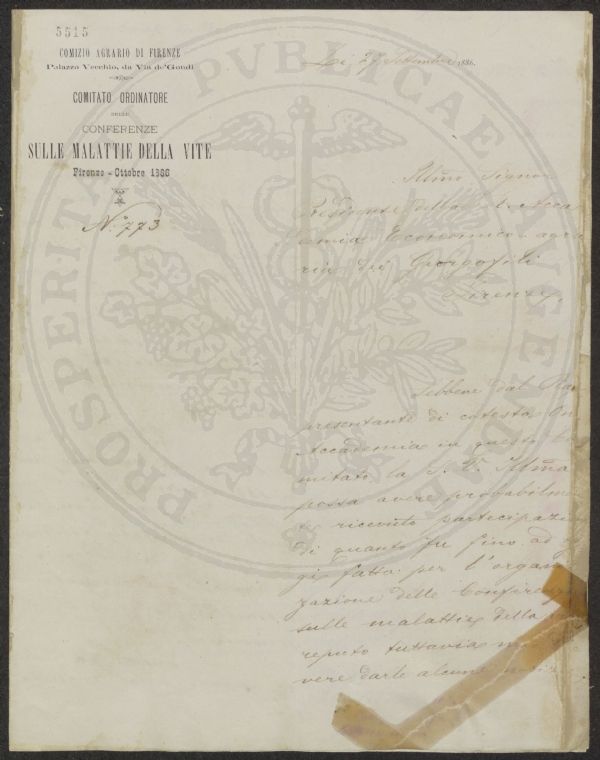 5515
COMIZIO AGRARIO DI FIRENZE
Palazzo Vecchio, da Via de' Gondi
COMITATO ORDINATORE
DELLE
CONFERENZE
SULLE MALATTIE DELLA VITE
Firenze - Ottobre 1886
N.° 773
Li 27 Settembre 1886.
Illmo Signor
Presidente della R. Acca
emia Economico-agra
ria dei Georgofili
Firenze
Sebbene dal Rap
presentante di cotesta On
Accademia in questo Co
mitato la S. V. Illma
possa avere probabilmen
te ricevuto partecipazio
di quanto fu fino ad og
gi fatto per l'organiz
zazione delle Conferenze
sulle malattie della
reputo tuttavia
vere darle alcune
PROSPERITATI PUBLICAE AUGENDAE